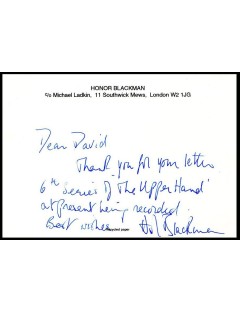 HONOR BLACKMAN
c/o Michael Ladkin, 11 Southwick Mews, London W2 1JG
Dear David
Thank you for your letter.
6th Series of 'The Upper Hand'
at present being recorded.
Best wishes
Recycled paper
Blackman